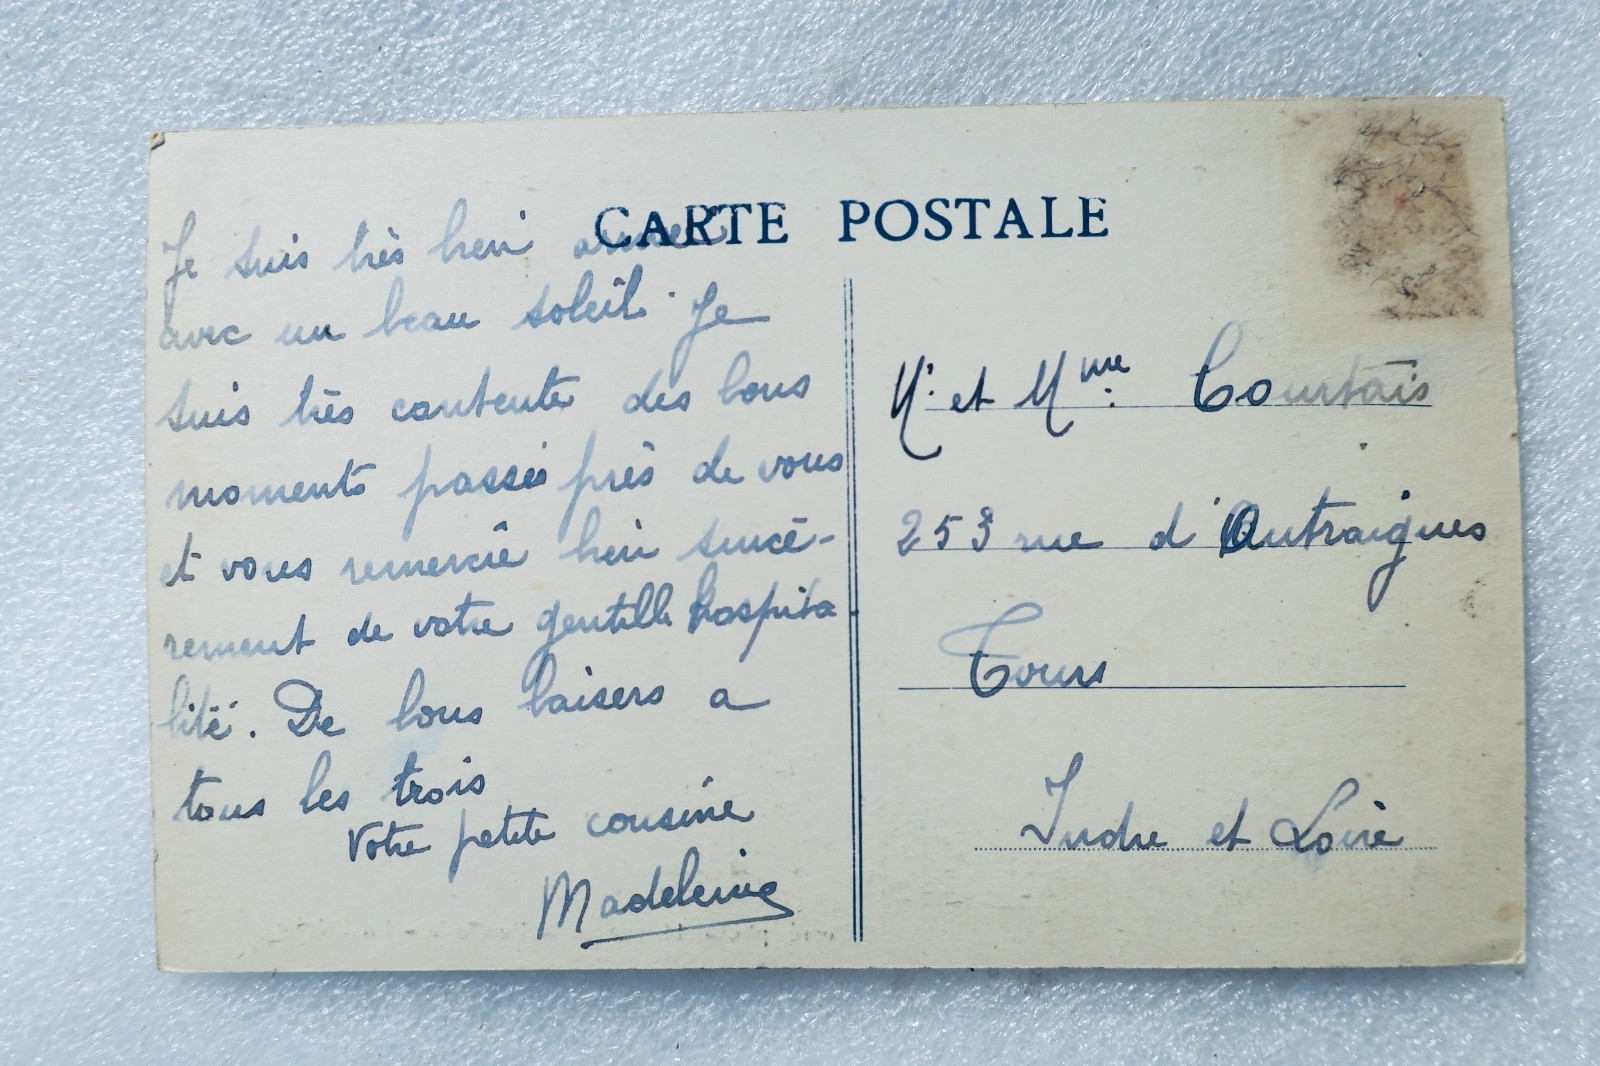 CARTE POSTALE
Je suis très bien
avec un beau soleil. Je
suis très contente des bons
moments passés près de vous
et vous remercie bien sincè-
rement de votre gentille hospita
lité. De bons baisers a
tous les trois
Votre petite cousine
Madeleine
M. et Mme. Courtois
253 rue d'Autraigues
Tours
Indre et Loire